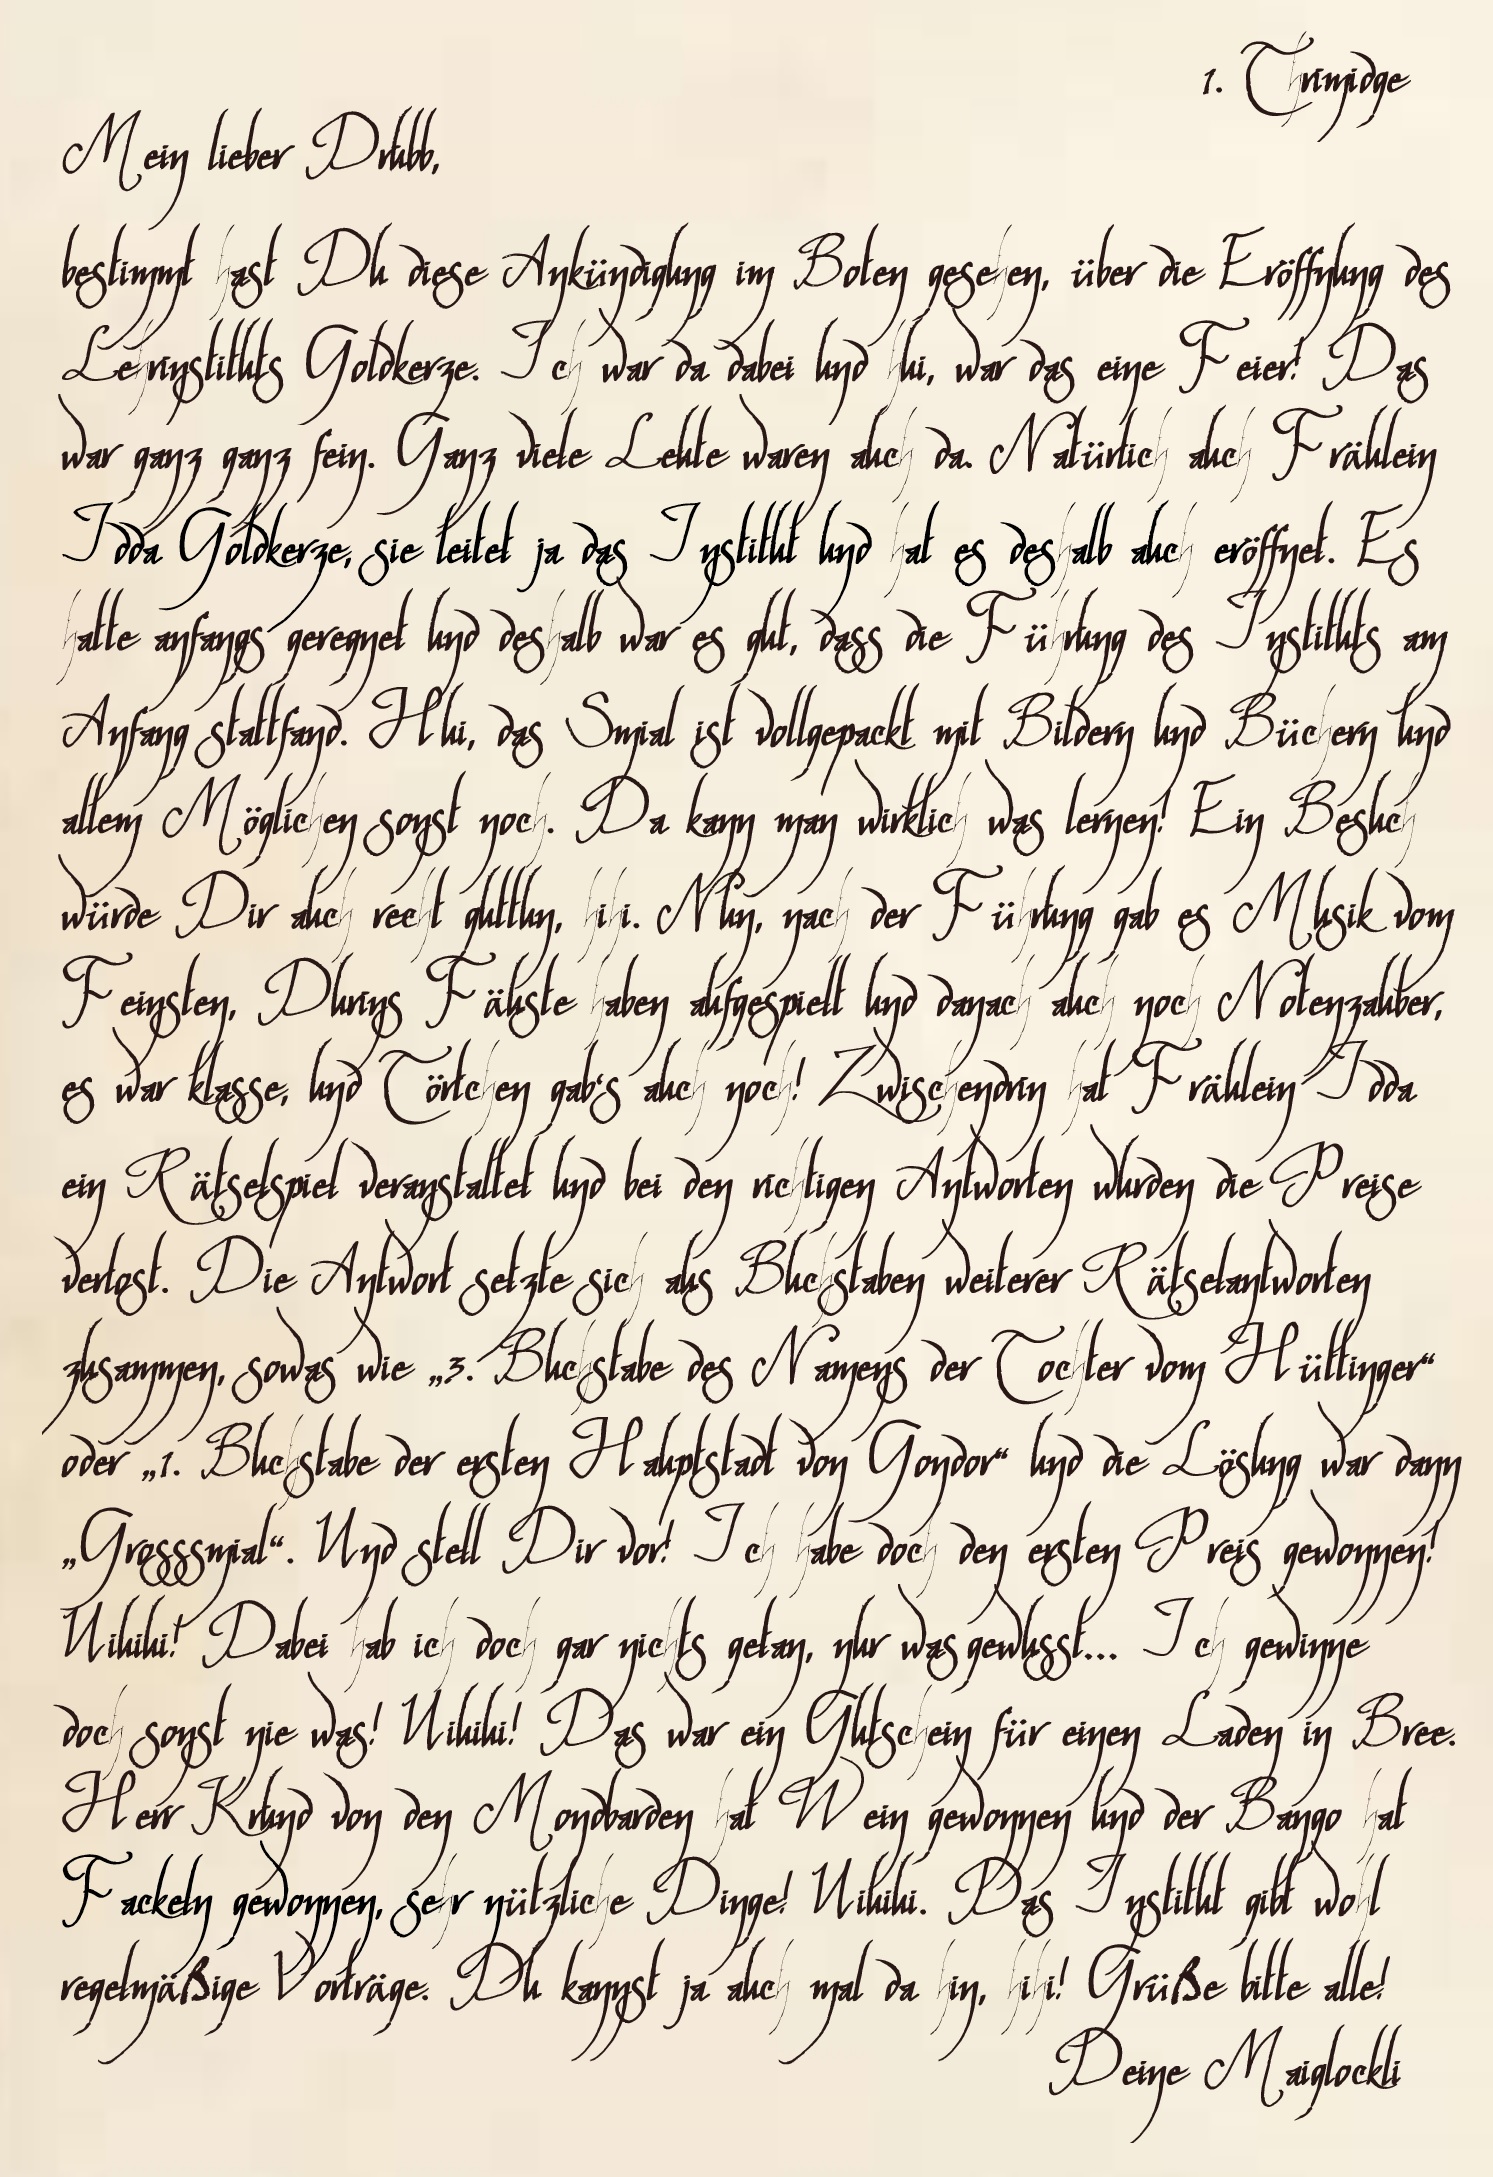 1. Thrimidge
Mein lieber Drubb,
bestimmt hast Du diese Ankündigung im Boten gesehen, über die Eröffnung des
Lehrinstituts Goldkerze. Ich war da dabei und hui, war das eine Feier! Das
war ganz ganz fein. Ganz viele Leute waren auch da. Natürlich auch Fräulein
Idda Goldkerze, sie leitet ja das Institut und hat es deshalb auch eröffnet. Es
hatte anfangs geregnet und deshalb war es gut, dass die Führung des Instituts am
Anfang stattfand. Hui, das Smial ist vollgepackt mit Bildern und Büchern und
allem Möglichen sonst noch. Da kann man wirklich was lernen! Ein Besuch
würde Dir auch recht guttun, hihi. Nun, nach der Führung gab es Musik vom
Feinsten, Durins Fäuste haben aufgespielt und danach auch noch Notenzauber,
es war klasse, und Törtchen gab's auch noch! Zwischendrin hat Fräulein Idda
ein Rätselspiel veranstaltet und bei den richtigen Antworten wurden die Preise
verlost. Die Antwort setzte sich aus Buchstaben weiterer Rätselantworten
zusammen, sowas wie „3. Buchstabe des Namens der Tochter vom Hüttinger“
oder „1. Buchstabe der ersten Hauptstadt von Gondor“ und die Lösung war dann
„Grosssmial“. Und stell Dir vor! Ich habe doch den ersten Preis gewonnen!
Uiuiui! Dabei hab ich doch gar nichts getan, nur was gewusst... Ich gewinne
doch sonst nie was! Uiuiui! Das war ein Gutschein für einen Laden in Bree.
Herr Krund von den Mondbarden hat Wein gewonnen und der Bango hat
Fackeln gewonnen, sehr nützliche Dinge! Uiuiui. Das Institut gibt wohl
regelmäßige Vorträge. Du kannst ja auch mal da hin, hihi! Grüße bitte alle!
Deine Maiglockli